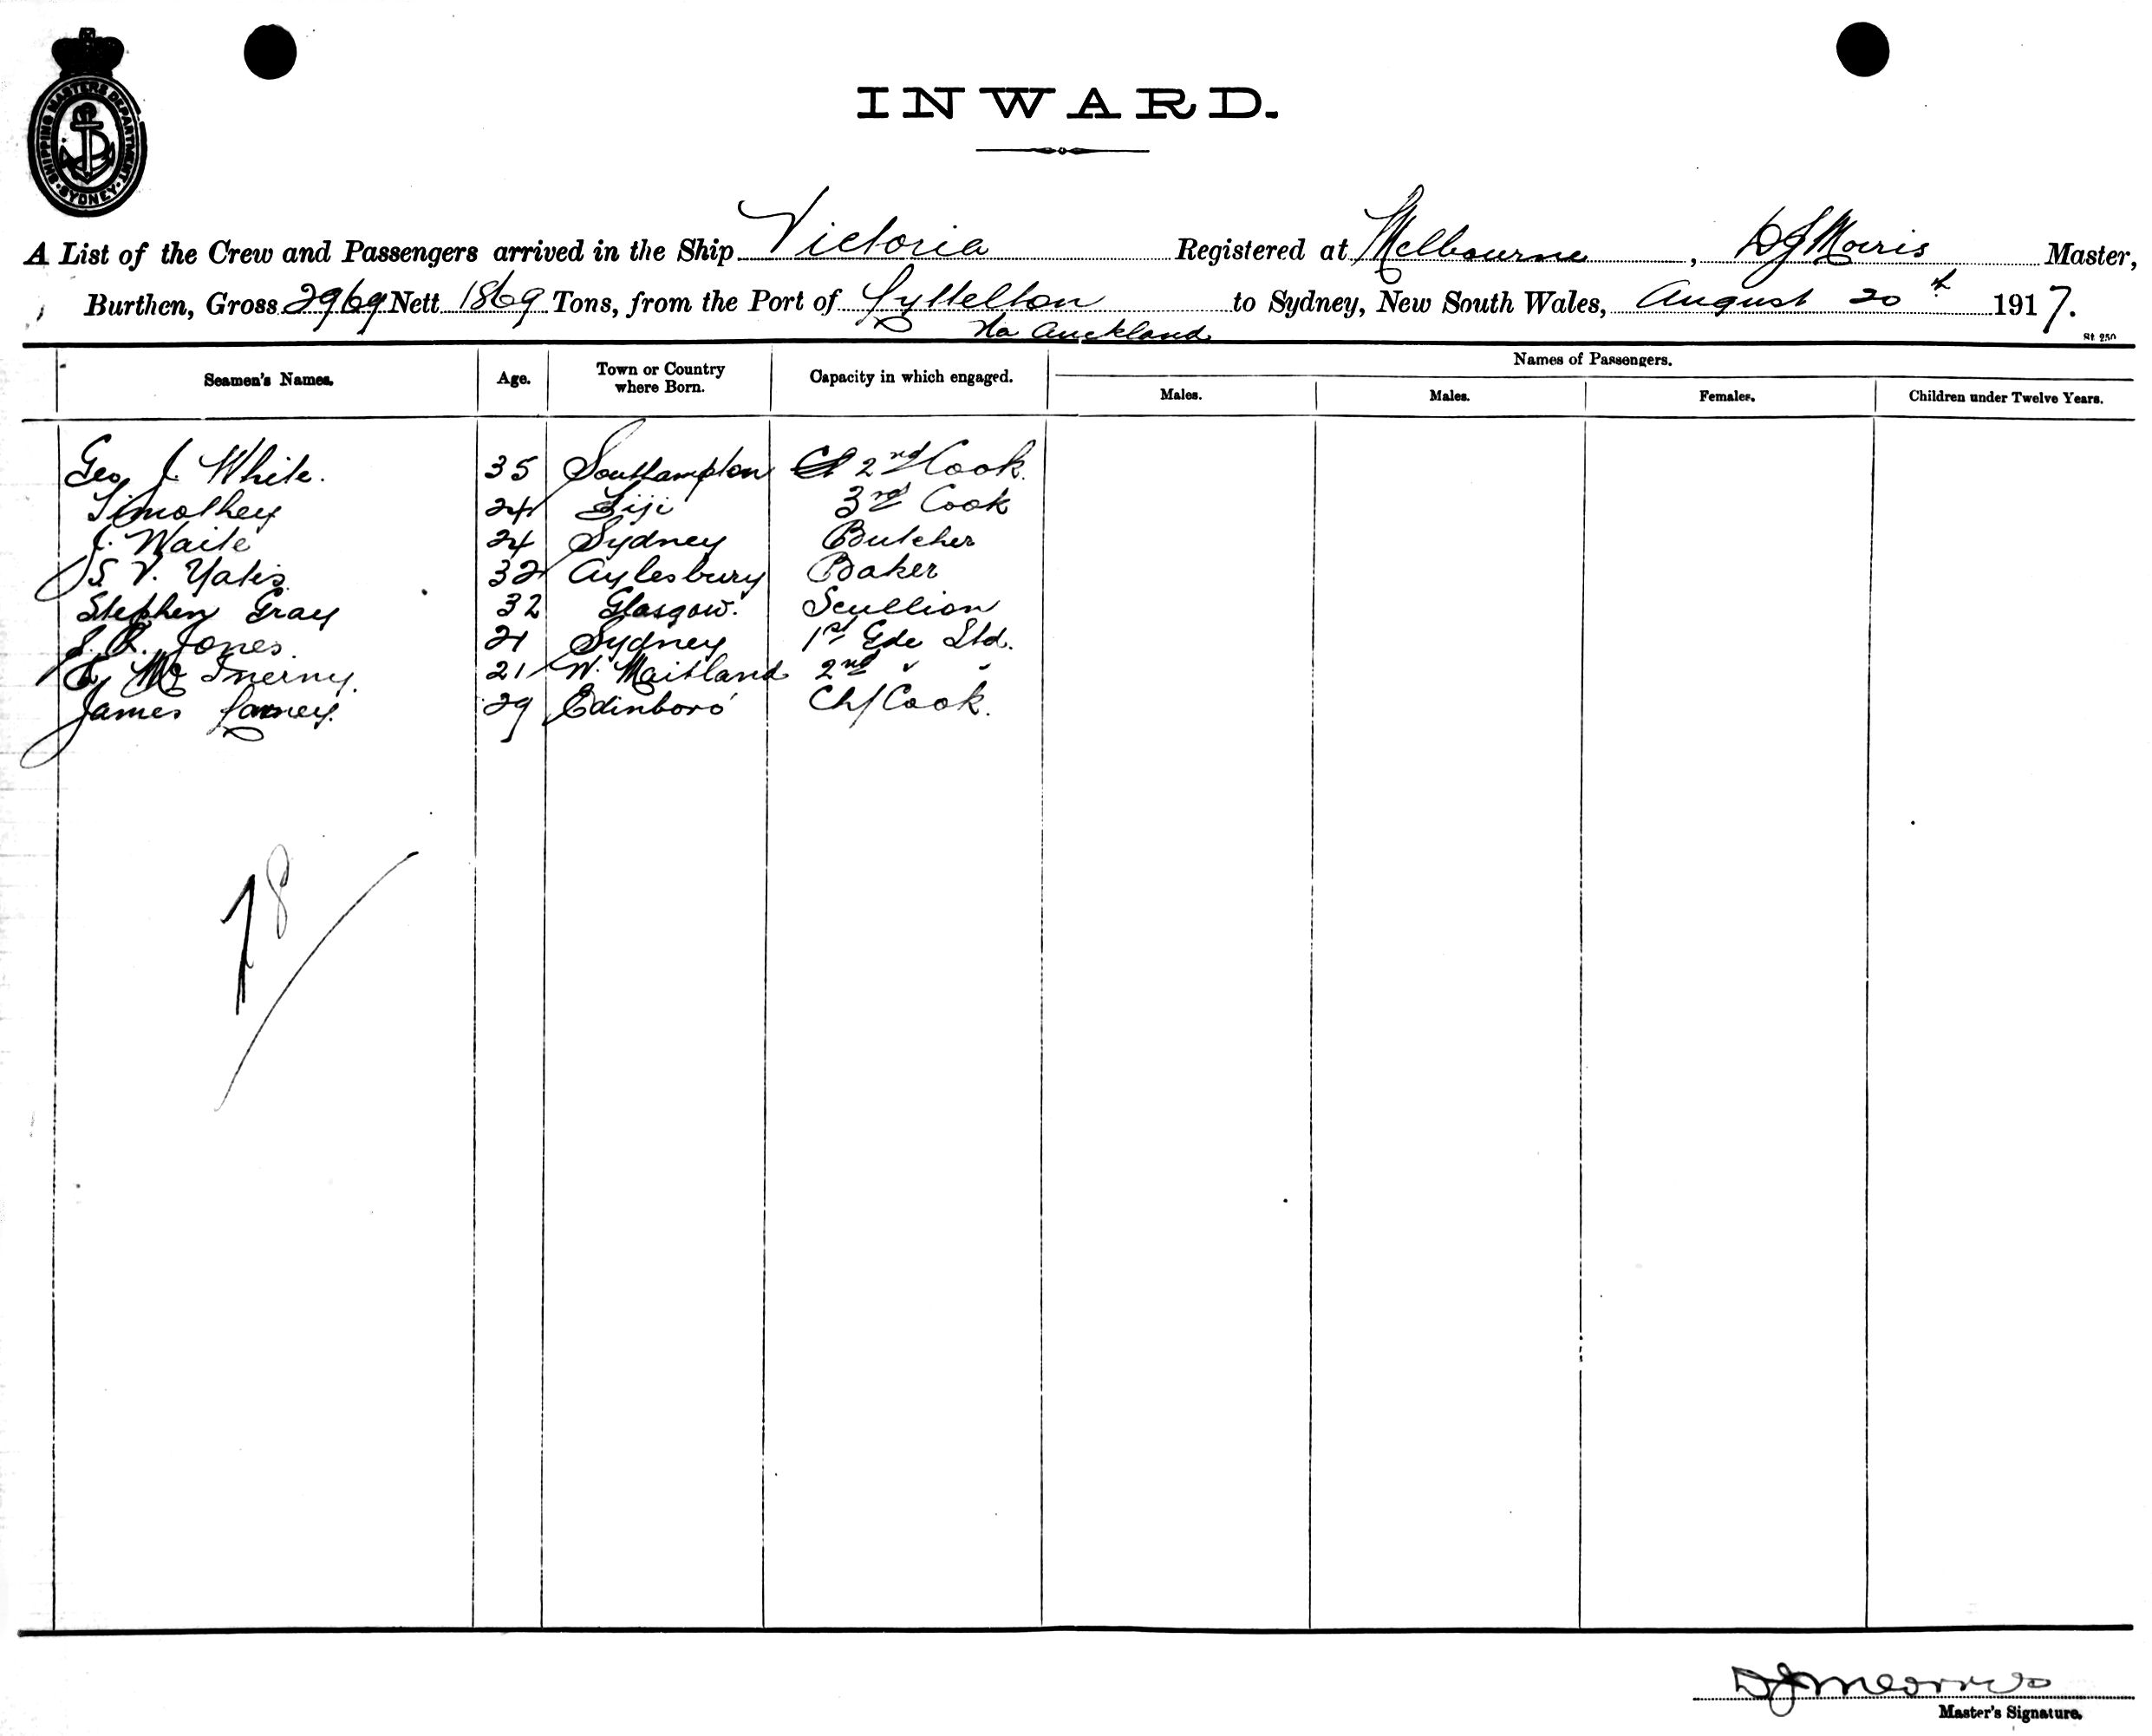 SHIPPING MASTERS DEPARTMENT
SYDNEY
INWARD.
A List of the Crew and Passengers arrived in the Ship Victoria Registered at Melbourne, D J Morris Master,
Burthen, Gross 2969 Nett 1869 Tons, from the Port of Lyttelton to Sydney, New South Wales, August 20th 1917.
via Auckland
St. 250
Seamen's Names. Age. Town or Country where Born. Capacity in which engaged. Names of Passengers.
Males. Males. Females. Children under Twelve Years.
Geo J. White. 35 Southampton 2nd Cook.
Timothey 24 Fiji 3rd Cook
J. Waite 24 Sydney Butcher
S. V. Yates 32 Aylesbury Baker
Stephen Gray 32 Glasgow. Scullion
Jones. 21 Sydney 1st Gde Std.
Mc Inerny. 21 W. Maitland 2nd " "
James 29 Edinboro' Chf Cook.
78
D J Morris
Master's Signature.